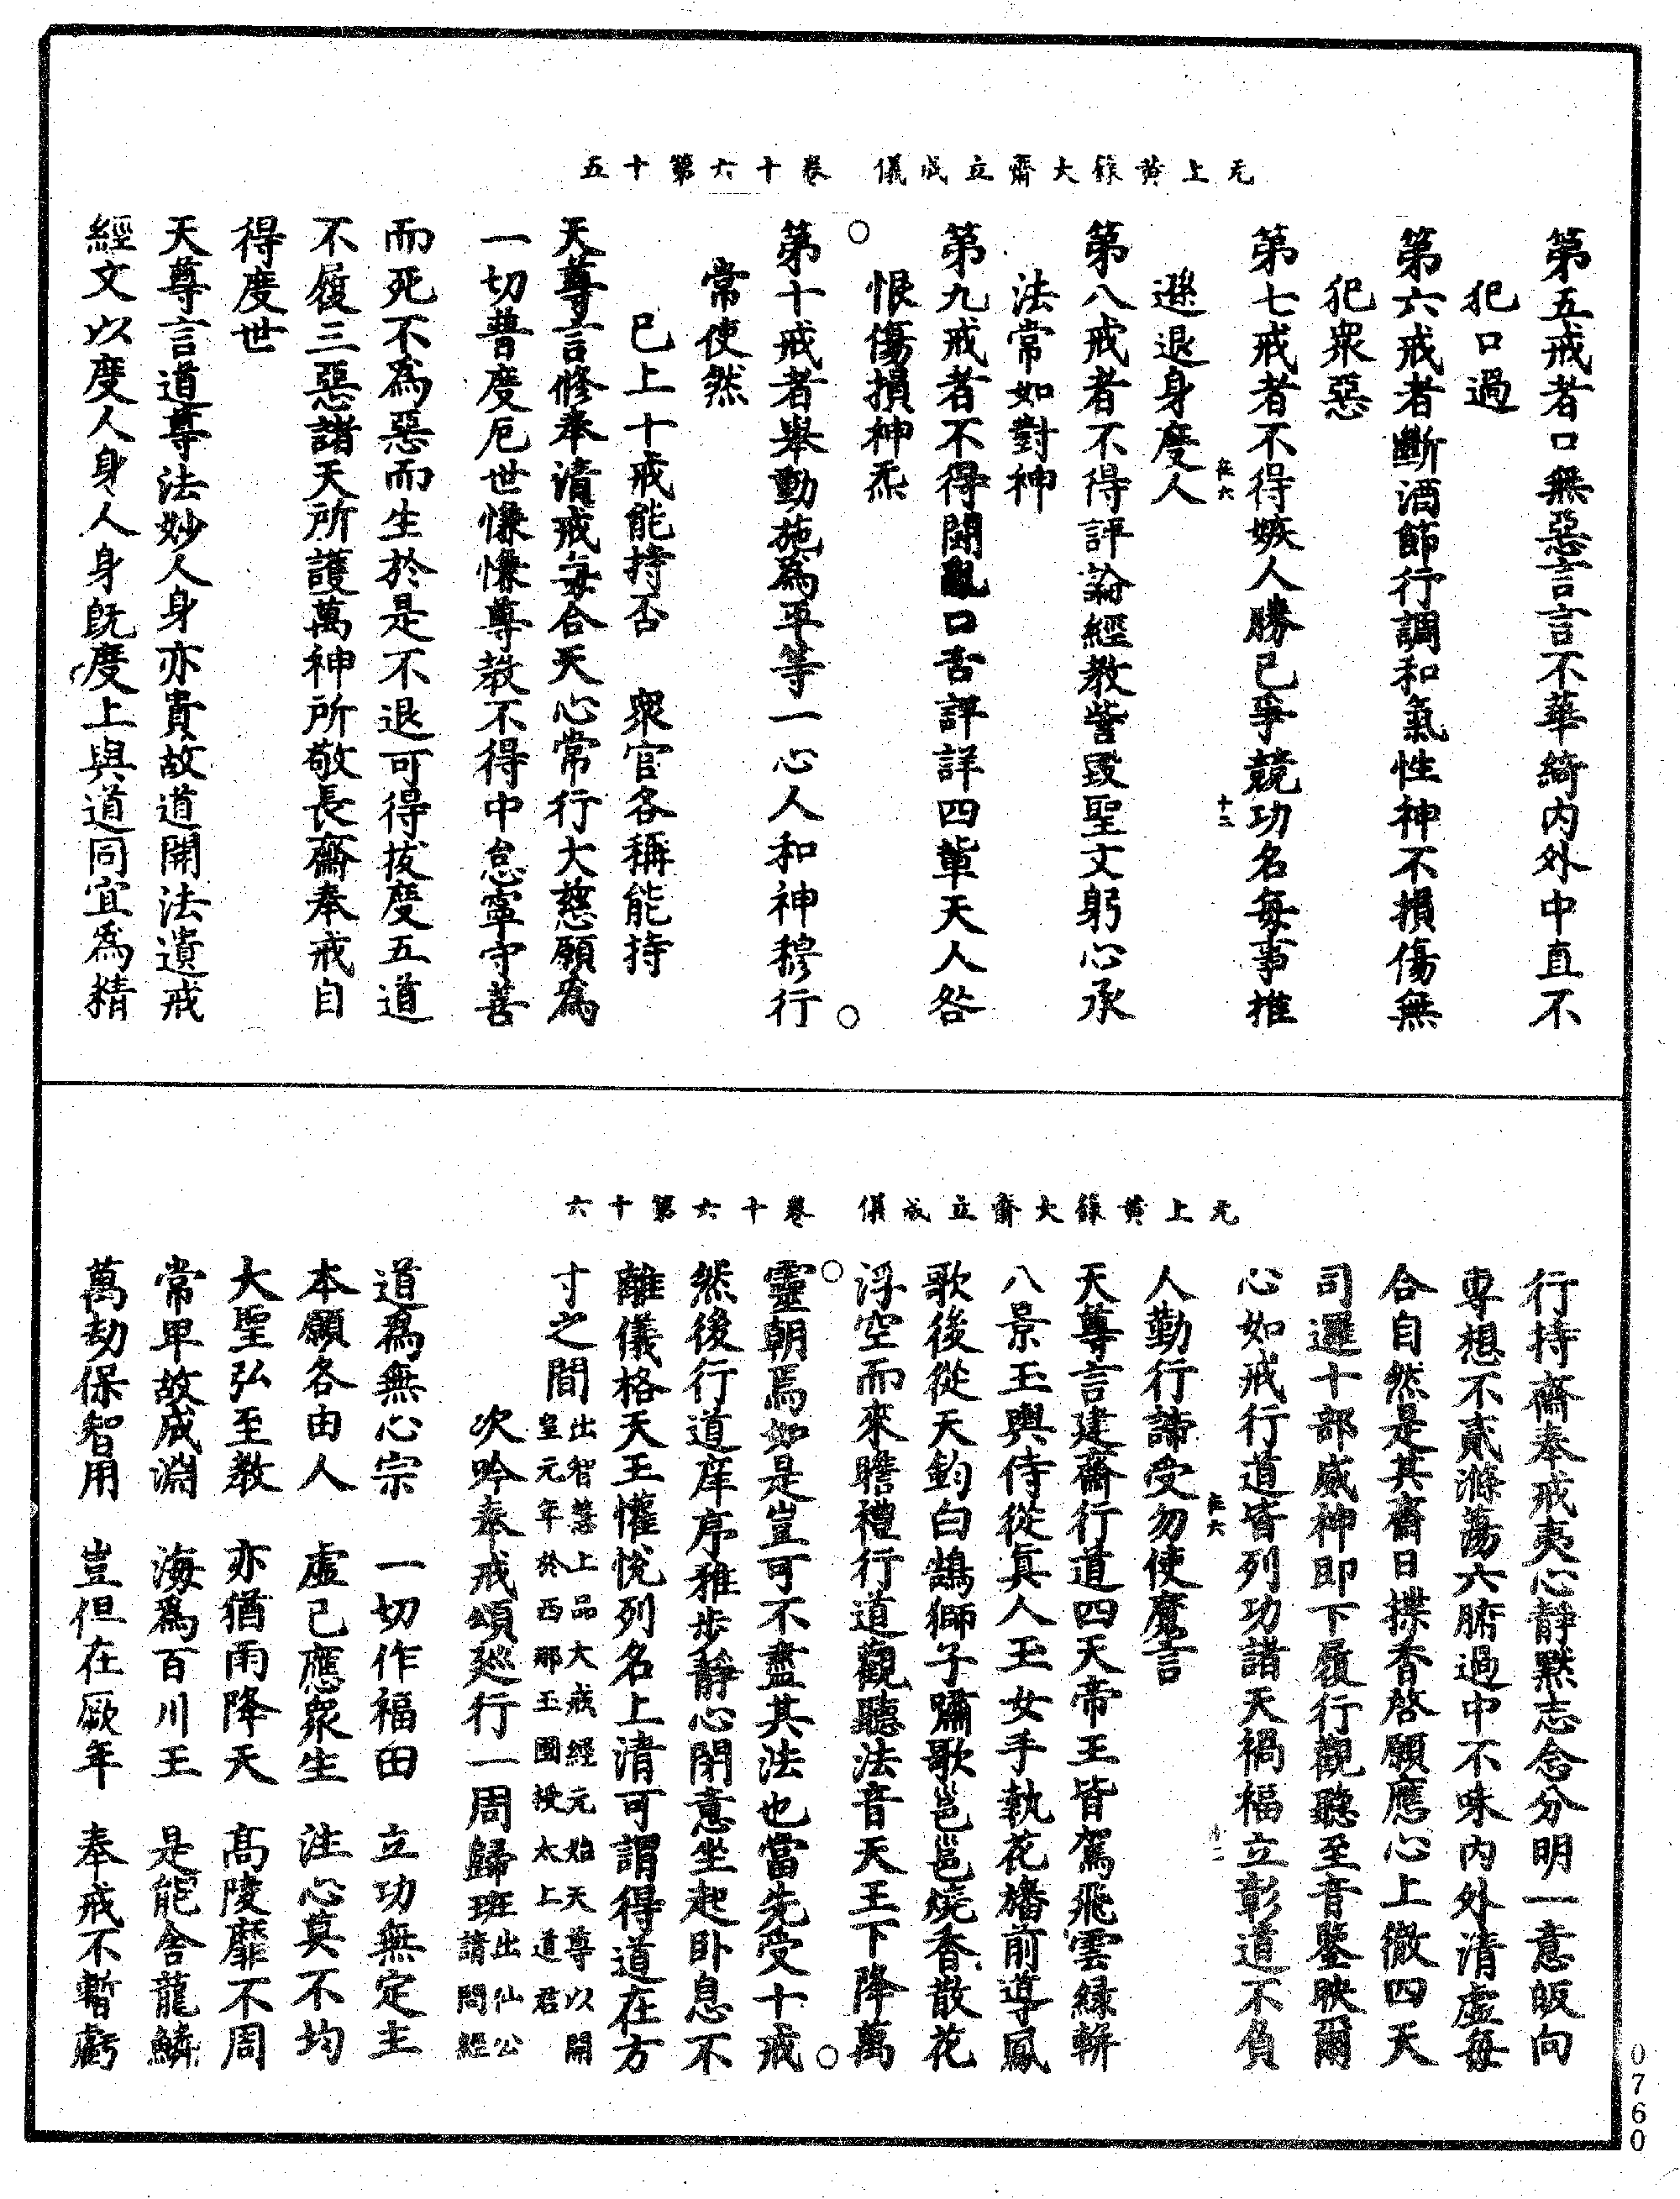 无上黃籙大齋立成儀　卷十六第十五
第五戒者口無惡言言不華綺內外中直不
犯口過
第六戒者斷酒節行調和氣性神不損傷無
犯衆惡
第七戒者不得嫉人勝已爭競功名每事推
遜退身度人
第八戒者不得評論經教訾毀聖文躬心承
法常如對神
第九戒者不得鬪亂口舌評詳四輩天人咎
恨傷損神炁
第十戒者舉動施爲平等一心人和神穆行
常使然
已上十戒能持否　衆官各稱能持
天尊言修奉清戒每合天心常行大慈願爲
一切普度厄世慊慊尊教不得中怠寧守善
而死不爲惡而生於是不退可得拔度五道
不履三惡諸天所護萬神所敬長齋奉戒自
得度世
天尊言道尊法妙人身亦貴故道開法遺戒
經文以度人身人身旣度上與道同宜爲精
无上黃籙大齋立成儀　卷十六第十六
行持齋奉戒夷心靜默志念分明一意皈向
專想不貳滌蕩六腑過中不味內外清虛每
合自然是其齋日揲香啓願應心上徹四天
司邏十部威神即下履行觀聽至音鑒映爾
心如戒行道皆列功諸天禍福立彰道不負
人勤行諦受勿使魔言
天尊言建齋行道四天帝王皆駕飛雲綠軿
八景玉輿侍從真人玉女手執花旛前導鳳
歌後從天鈞白鵠獅子嘯歌邕邕燒香散花
浮空而來瞻禮行道觀聽法音天王下降萬
靈朝焉如是豈可不盡其法也當先受十戒
然後行道庠序雅步靜心閉意坐起卧息不
離儀格天王懽悅列名上清可謂得道在方
寸之間出智慧上品大戒經元始天尊以開皇元年於西那玉國授太上道君
次吟奉戒頌廵行一周歸班出仙公請問經
道爲無心宗　一切作福田　立功無定主
本願各由人　虛己應衆生　注心莫不均
大聖弘至教　亦猶雨降天　高陵靡不周
常卑故成淵　海爲百川王　是能舍龍鱗
萬劫保智用　豈但在厥年　奉戒不暫虧
0760